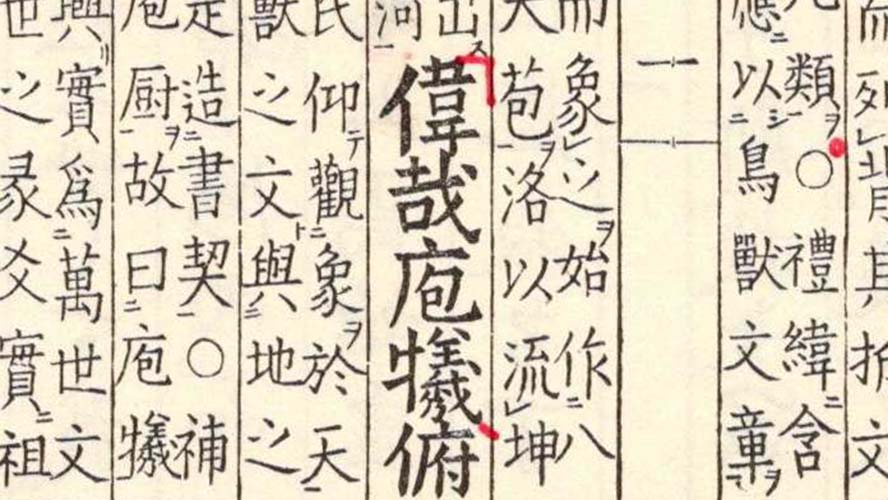 類○禮緯含
應以鳥獸文章
而象之始作八
天苞洛以流坤
出
河
偉哉庖犧俯
氏仰觀象於天
獸之文與地之
是造書契○補
庖厨故曰庖犧
興實爲萬世文
世之彖爻實祖